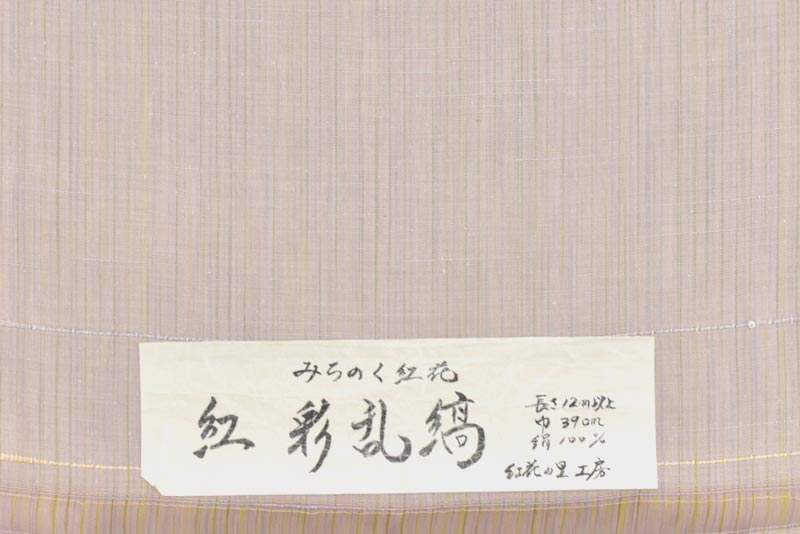 みちのく紅花
紅 彩乱縞
長さ12m以上
巾 39cm
絹 100%
紅花の里工房